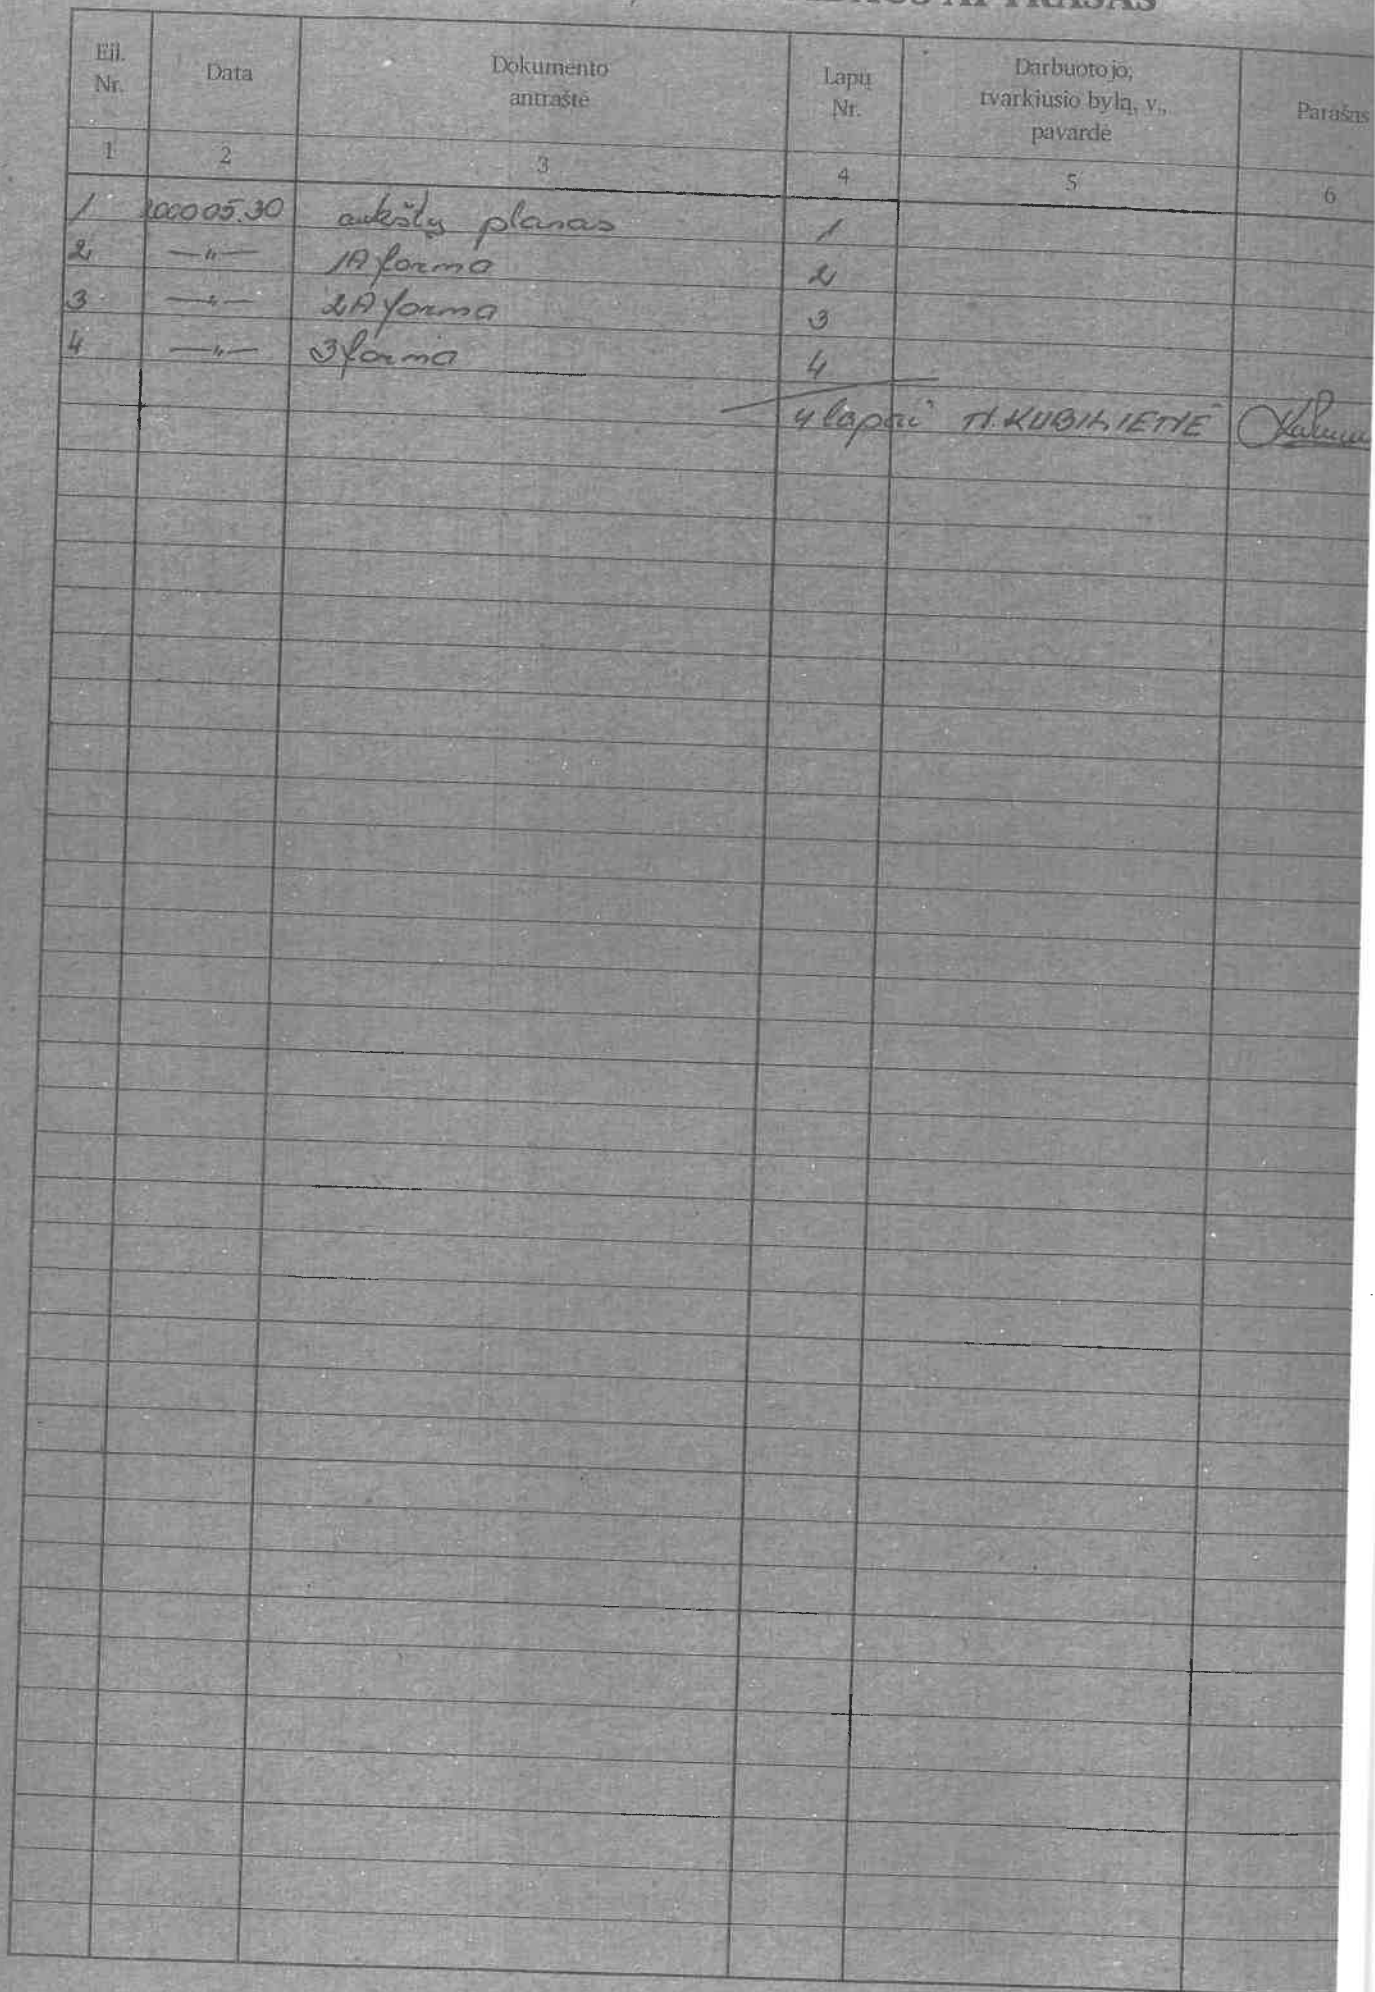 APYRAŠAS
Eil.
Nr.
Data
Dokumento
antraštė
Lapų
Nr.
Darbuotojo,
tvarkiusio bylą, v.,
pavardė
Parašas
1 2 3 4 5 6
1 2000 05.30 aukštų planas 1
2 —"— 1A forma 2
3 —"— 2A forma 3
4 —"— 3 forma 4
4 lapai KUBILIENĖ